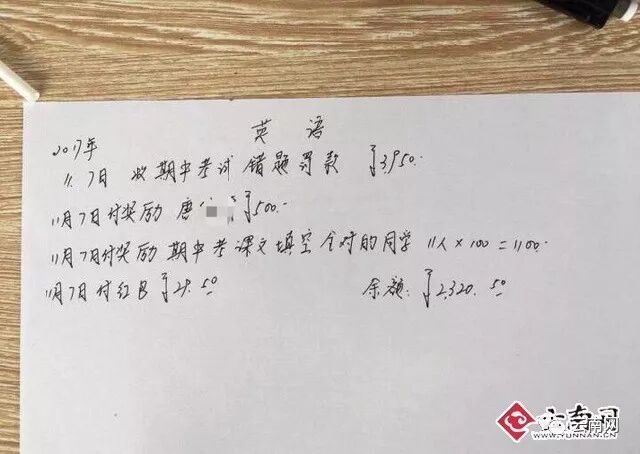 英语
2017年
11.7日 收期中考试错题罚款 ¥3950.-
11月7日付奖励 唐 ¥500.-
11月7日付奖励 期中考课文填空全对的同学 11人×100=1100.-
11月7日付红包 ¥29.50 余额:¥2320.50
云南网
WWW.YUNNAN.CN
云南网